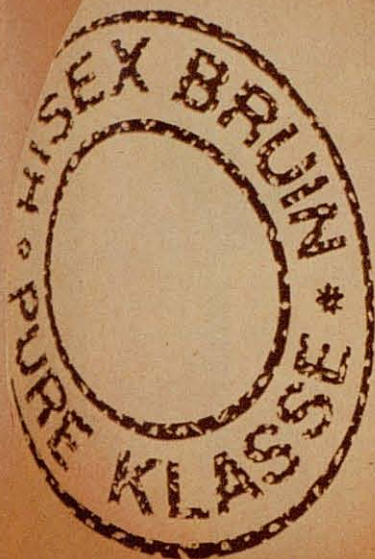 HISEX BRUIN
PURE KLASSE